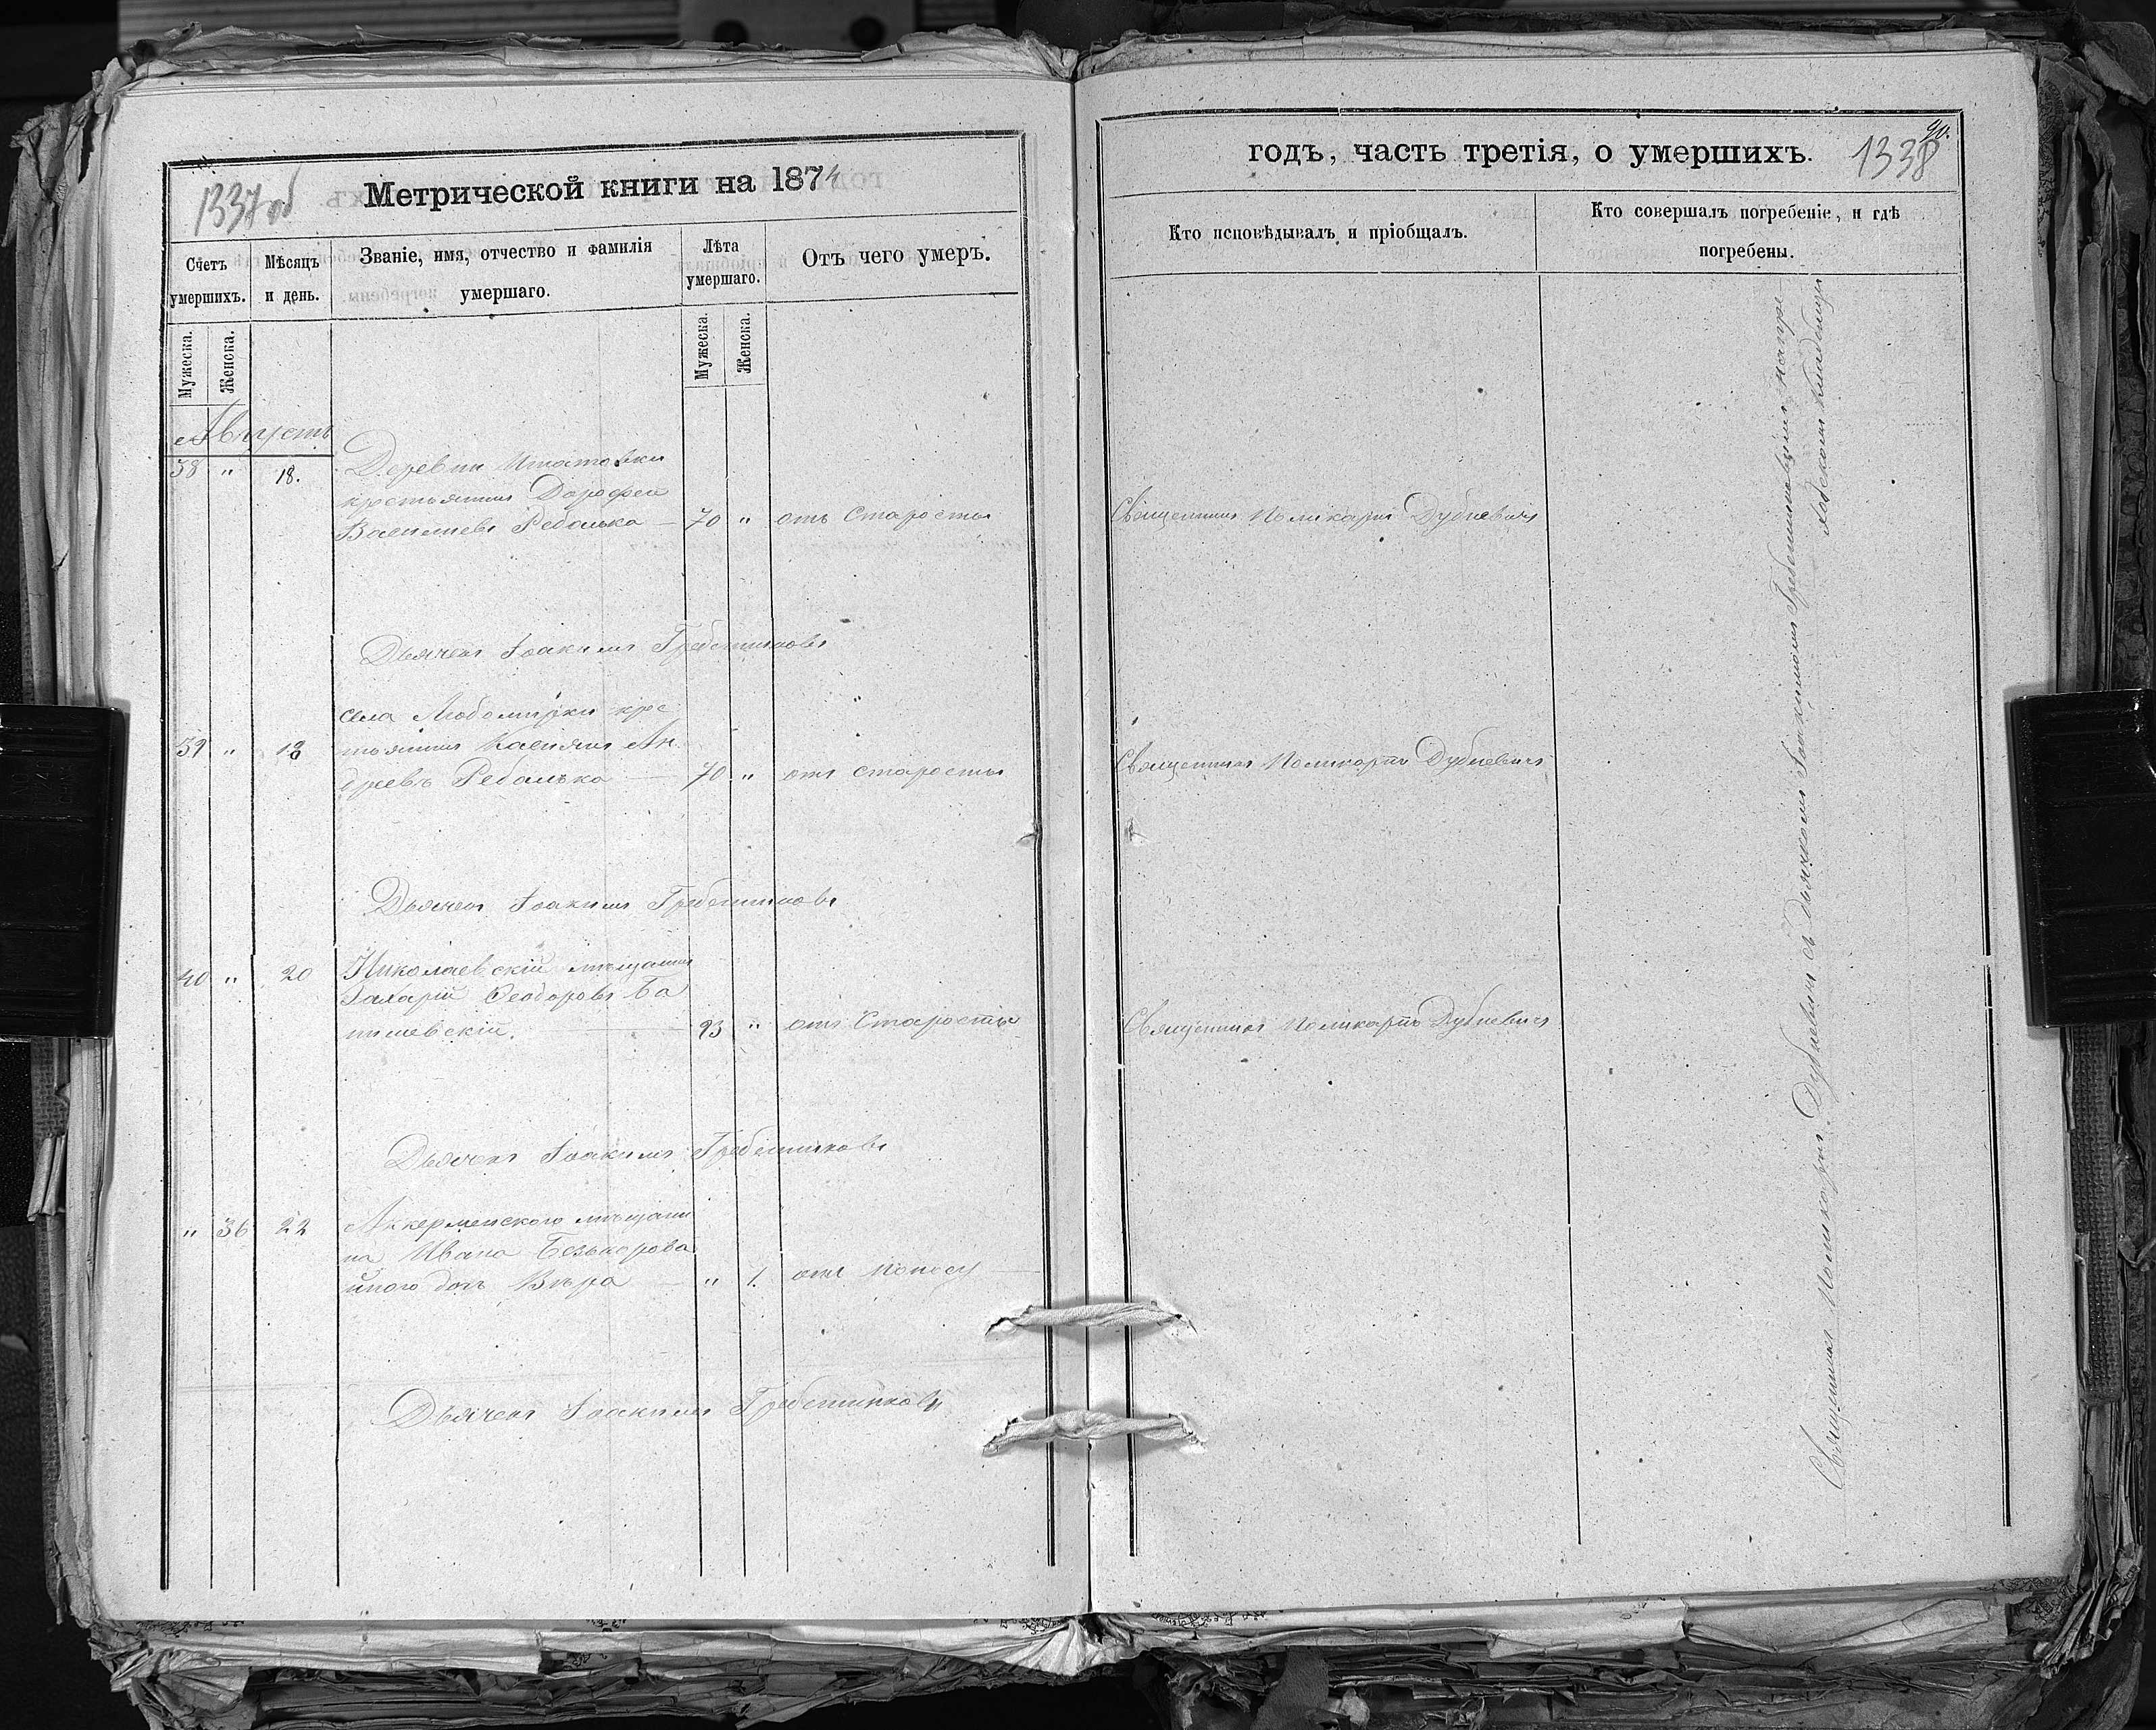 1337об
Метрической книги на 1874
Счетъ умершихъ.
Мѣсяцъ и день.
Званіе, имя, отчество и фамилія умершаго.
Лѣта умершаго.
Отъ чего умеръ.
Мужеска.
Женска.
Мужеска.
Женска.
Августъ
38 " 18. Деревни
крестьянинъ Дорофей
Василіевъ Ребалька — 70 " отъ Старости
Дьячекъ Іоакимъ Гребенниковъ
села Любомирки кре
39 " 18 стьянинъ Касіянъ Ан
дреевъ Ребалька — 70 " отъ старости
Дьячекъ Іоакимъ Гребенниковъ
40 " 20 Николаевскій мѣщанинъ
Захарій Ѳеодоровъ Ба
нишевскій. — 93 " отъ Старости
Дьячекъ Іоакимъ Гребенниковъ
" 36 22 Аккерменского мѣщани
на Ивана Безькорова
йного дочь Вѣра — " 1. отъ поносу —
Дьячекъ Іоакимъ Гребенниковъ
годъ, часть третія, о умершихъ.
1338
90.
Кто исповѣдывалъ и пріобщалъ.
Кто совершалъ погребеніе, и гдѣ
погребены.
Священникъ Поликарпъ Дубневичъ
Священникъ Поликарпъ Дубневичъ
Священникъ Поликарпъ Дубневичъ
Священникъ Поликарпъ Дубневичъ съ дьячкомъ Іоакимомъ Гребенниковымъ на при-
ходскомъ кладбищѣ